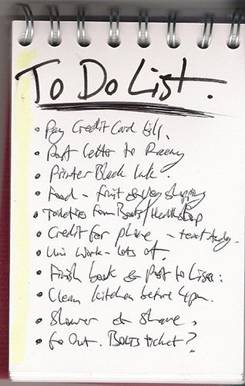 To Do List.
• Pay Credit Card bill.
• Post letter to
• Printer Black Ink.
• Food - fruit & veg shopping
• Toiletries from Boots /
• Credit for phone - text
• Uni Work - lots of.
• Finish book & Post to Lissa.
• Clean kitchen before 4pm.
• Shower & Shave.
• Go Out. ticket?